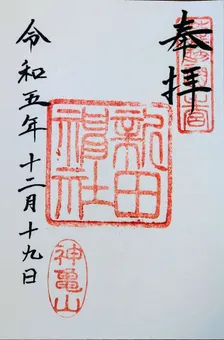 奉拝
新田
神社
神亀山
令和五年十二月十九日